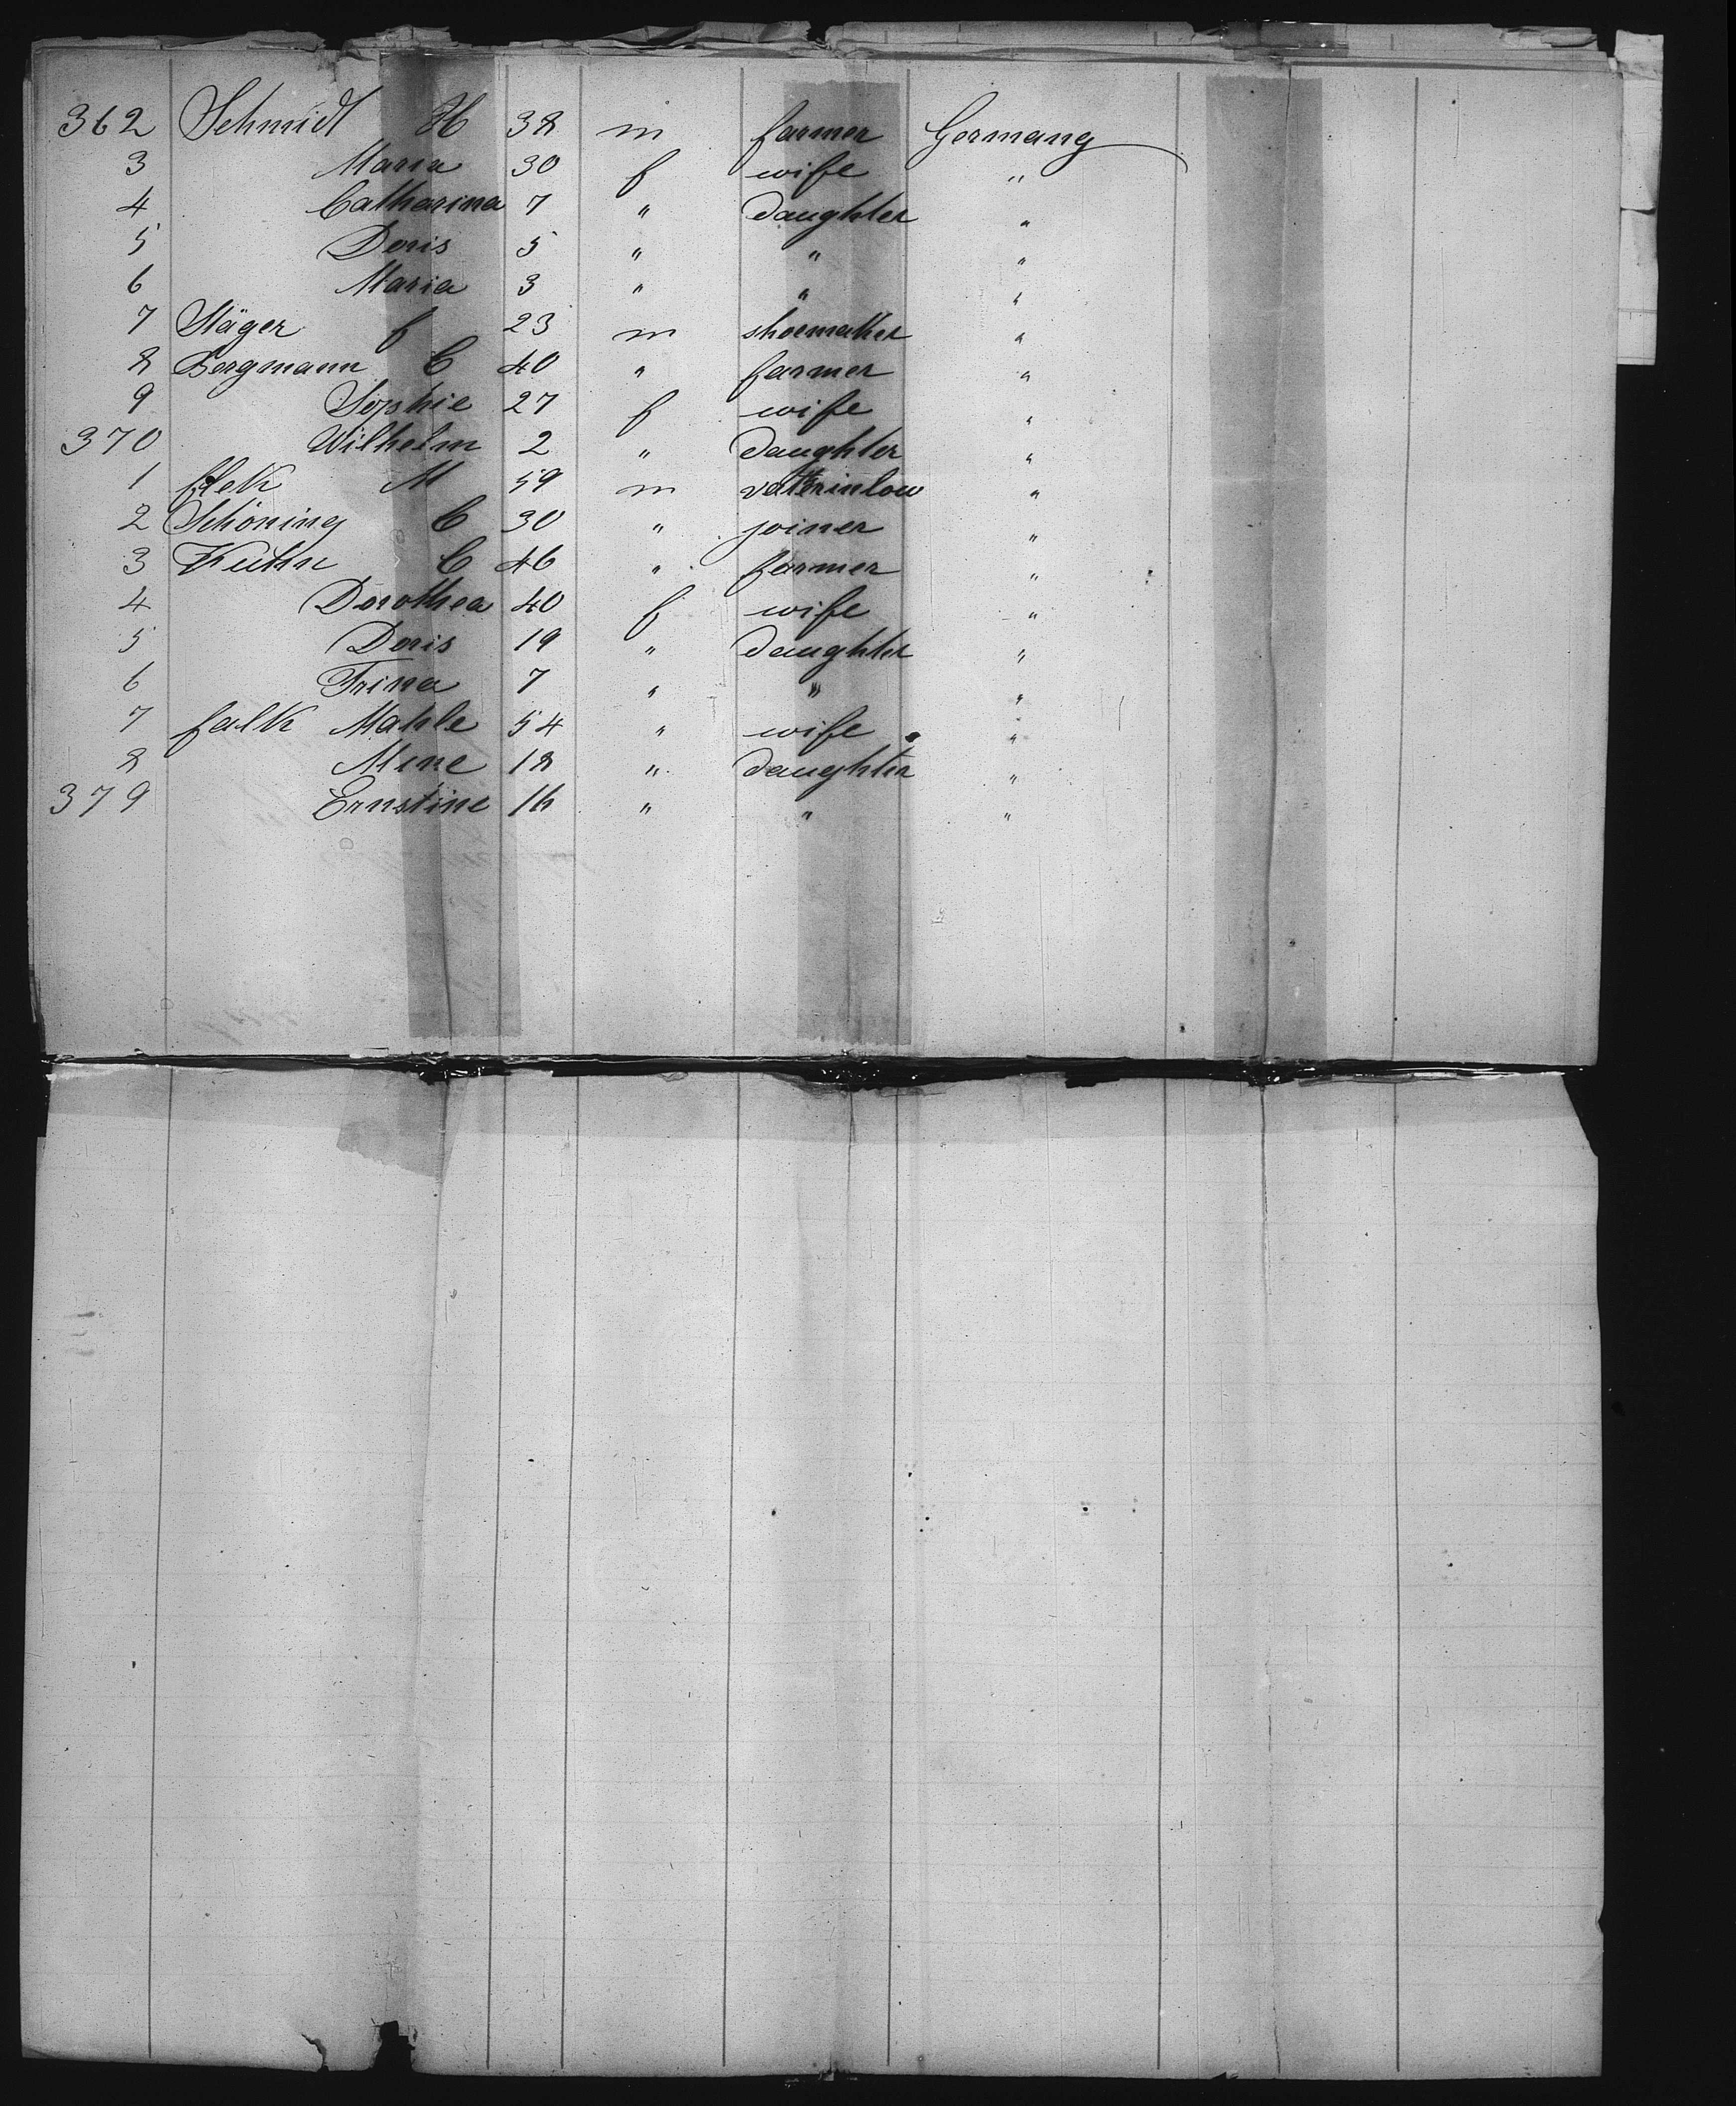 362 Schmidt H 38 m farmer Germany
3 Maria 30 f wife "
4 Catharina 7 " daughter "
5 Doris 5 " " "
6 Maria 3 " " "
7 Stäger f 23 m shoemaker "
8 Bergmann C 40 " farmer "
9 Sophie 27 f wife "
370 Wilhelm 2 " daughter "
1 M 59 m "
2 Schöning C 30 " joiner "
3 Kuhn C 46 " farmer "
4 Dorothea 40 f wife "
5 Doris 19 " daughter "
6 Trina 7 " " "
7 falk Mahle 54 " wife "
8 Mine 18 " daughter "
379 Ernstine 16 " " "